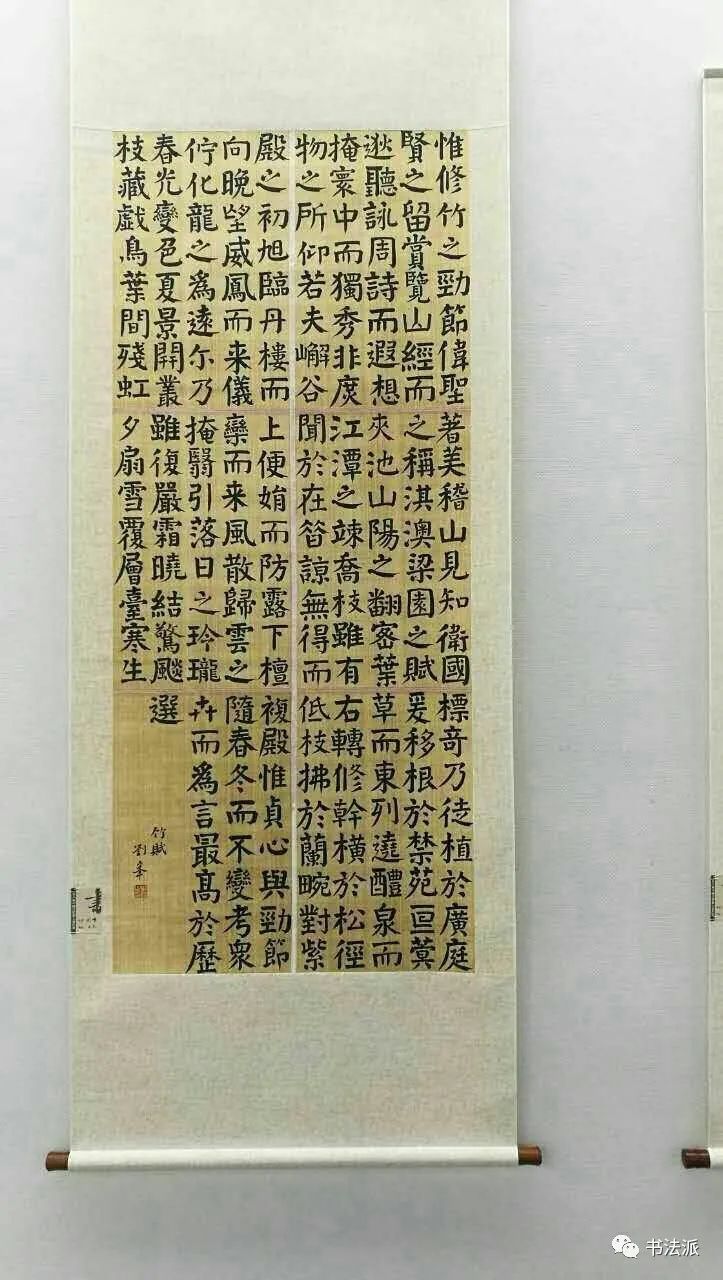 惟修竹之勁節偉聖
賢之留賞覽山經而
逖聽詠周詩而遐想
掩寰中而獨秀非庶
物之所仰若夫嶰谷
著美稽山見知衛國
之稱淇澳梁園之賦
夾池山陽之翻密葉
江潭之竦喬枝雖有
聞於在昔諒無得而
標奇乃徒植於廣庭
爰移根於禁苑亘蓂
草而東列遶醴泉而
右轉修幹橫於松徑
低枝拂於蘭畹對紫
殿之初旭臨丹樓而
向晚望威鳳而来儀
佇化龍之爲遠尔乃
春光變色夏景開叢
枝藏戯鳥葉間殘虹
上便娟而防露下檀
欒而来風散歸雲之
掩翳引落日之玲瓏
雖復嚴霜曉結驚飈
夕扇雪覆層臺寒生
複殿惟貞心與勁節
隨春冬而不變考衆
卉而爲言最高於歷
選
竹賦
劉峯
书法派